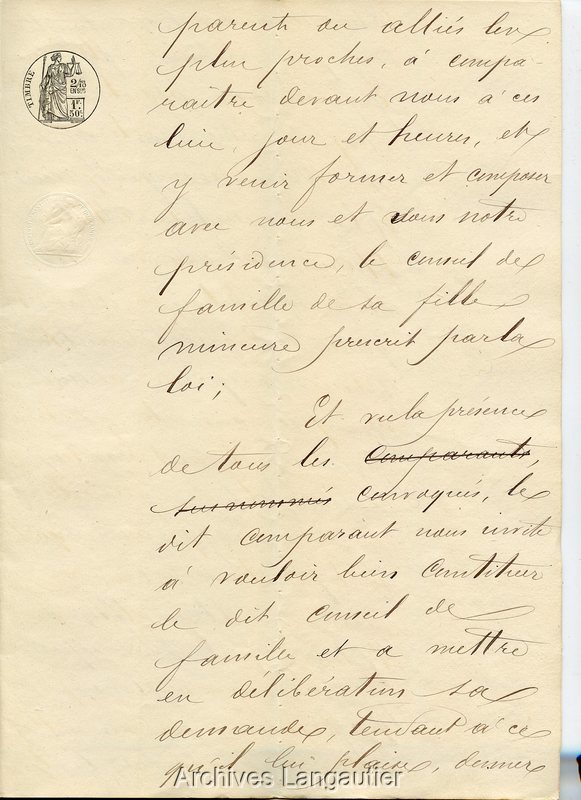 parents ou alliés les
plus proches, à compa-
raître devant nous à ces
lieu, jour et heures, et
y venir former et composer
avec nous et sous notre
présidence, le conseil de
famille de sa fille
mineure prescrit par la
loi;
Et vu la présence
de tous les comparants,
sus nommés convoqués, le
dit comparant nous invite
à vouloir bien constituer
le dit conseil de
famille et a mettre
en délibération sa
demande, tendant à ce
qu'il lui plaise, donner
TIMBRE
2/10
EN SUS
1F.
50c.
Archives Langautier